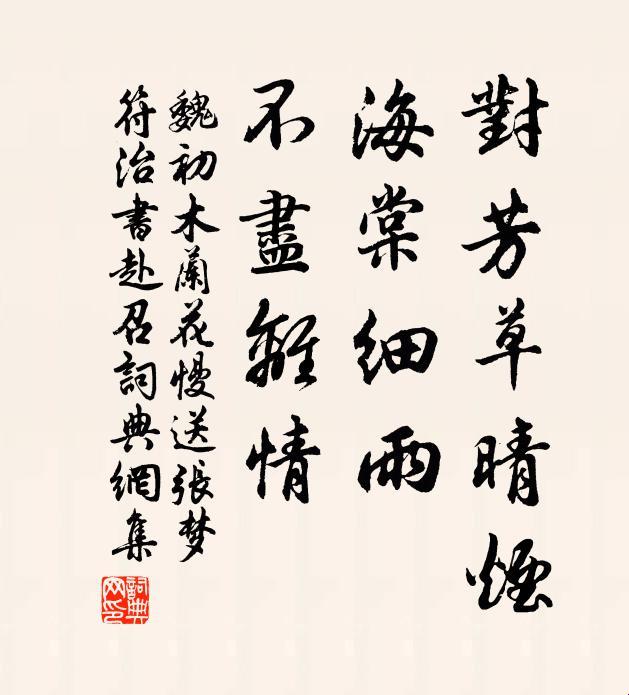 對芳草晴煙
海棠細雨
不盡離情
魏初木蘭花慢送張梦
符治書赴召詞典網集
詞典
网印